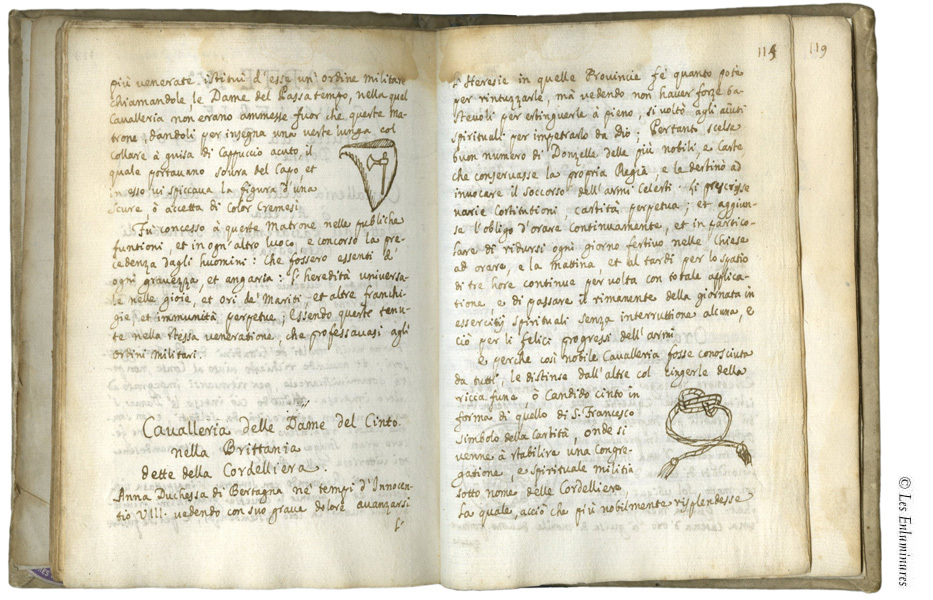 più venerate istituì d'esse un' ordine militare
chiamandole, le Dame del Passatempo, nella qual
Cavalleria non erano ammesse fuor che queste ma-
trone, dandoli per insegna una veste lunga col
collare à guisa di Cappuccio acuto, il
quale portavano soura del Capo, et
in esso vi spiccava la figura d'una
scure, ò accetta di color Cremesi
Fù concesso à queste Matrone nelle publiche
funtioni, et in ogn' altro luoco, e concorso la pre-
cedenza dagli huomini: che fossero essenti d'
ogni gravezza, et angaria: l' heredità universa-
le nelle gioie, et ori de' Mariti et altre franchi-
gie et immunità perpetue; Essendo queste tenu-
te nella stessa veneratione, che professavasi agli
ordini militari.
Cavalleria delle Dame del Cinto
nella Brittania
dette della Cordelliera.
Anna Duchessa di Bertagna ne' tempi d'Innocen-
tio VIII. vedendo con suo grave dolore avanzarsi
l'
114
119
l'Heresie in quelle Provincie fè quanto potè
per rintuzzarle, mà vedendo non haver forze ba-
stevoli per estinguerle à pieno, si voltò agli aiuti
spirituali per impetrarlo da Dio; Pertanti scelse
buon numero di Donzelle delle più nobili, e caste
che conservasse la propria Regia, e le destinò ad
invocare il soccorso dell' armi Celesti: li prescrisse
varie Costitutioni, castità perpetua; et aggiun-
se l'obligo d'orare Continuamente, et in partico-
lare di ridursi ogni giorno festivo nelle Chiese
ad orare, e la mattina, et al tardi per lo spatio
di tre hore continue per volta con totale applica-
tione, e di passare il rimanente della giornata in
essercitij spirituali senza interruttione alcuna, e
ciò per li felici progressi dell' armi
E perche così nobile Cavalleria fosse conosciuta
da tutti, le distinse dall' altre col cingerle della
ricca fune ò candido cinto in
forma di quello di S. Francesco
simbolo della Castità, onde si
venne à stabilire una Congre-
gatione, e spirituale militia
sotto nome delle Cordelliere
La quale, acciò che più nobilmente risplendesse
© Les Enluminures